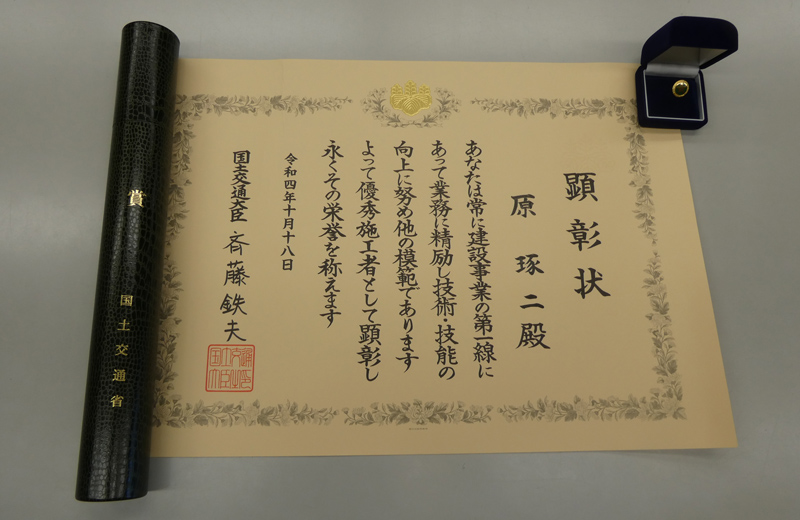 顕彰状
原琢二殿
あなたは常に建設事業の第一線に
あって業務に精励し技術・技能の
向上に努め他の模範であります
よって優秀施工者として顕彰し
永くその栄誉を称えます
令和四年十月十八日
国土交通大臣 斉藤鉄夫
賞
国土交通省